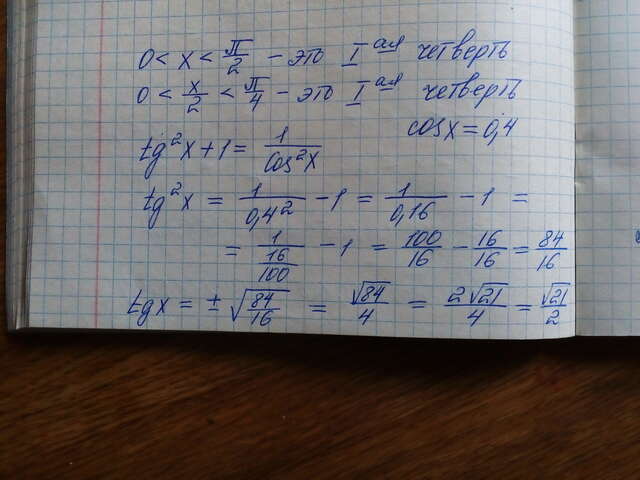 0 < x < π/2 – это I ая четверть
0 < x/2 < π/4 – это I ая четверть
cosx = 0,4
tg²x + 1 = 1/cos²x
tg²x = 1/0,4² - 1 = 1/0,16 - 1 =
= 1/(16/100) - 1 = 100/16 - 16/16 = 84/16
tgx = ± √(84/16) = √84/4 = 2√21/4 = √21/2